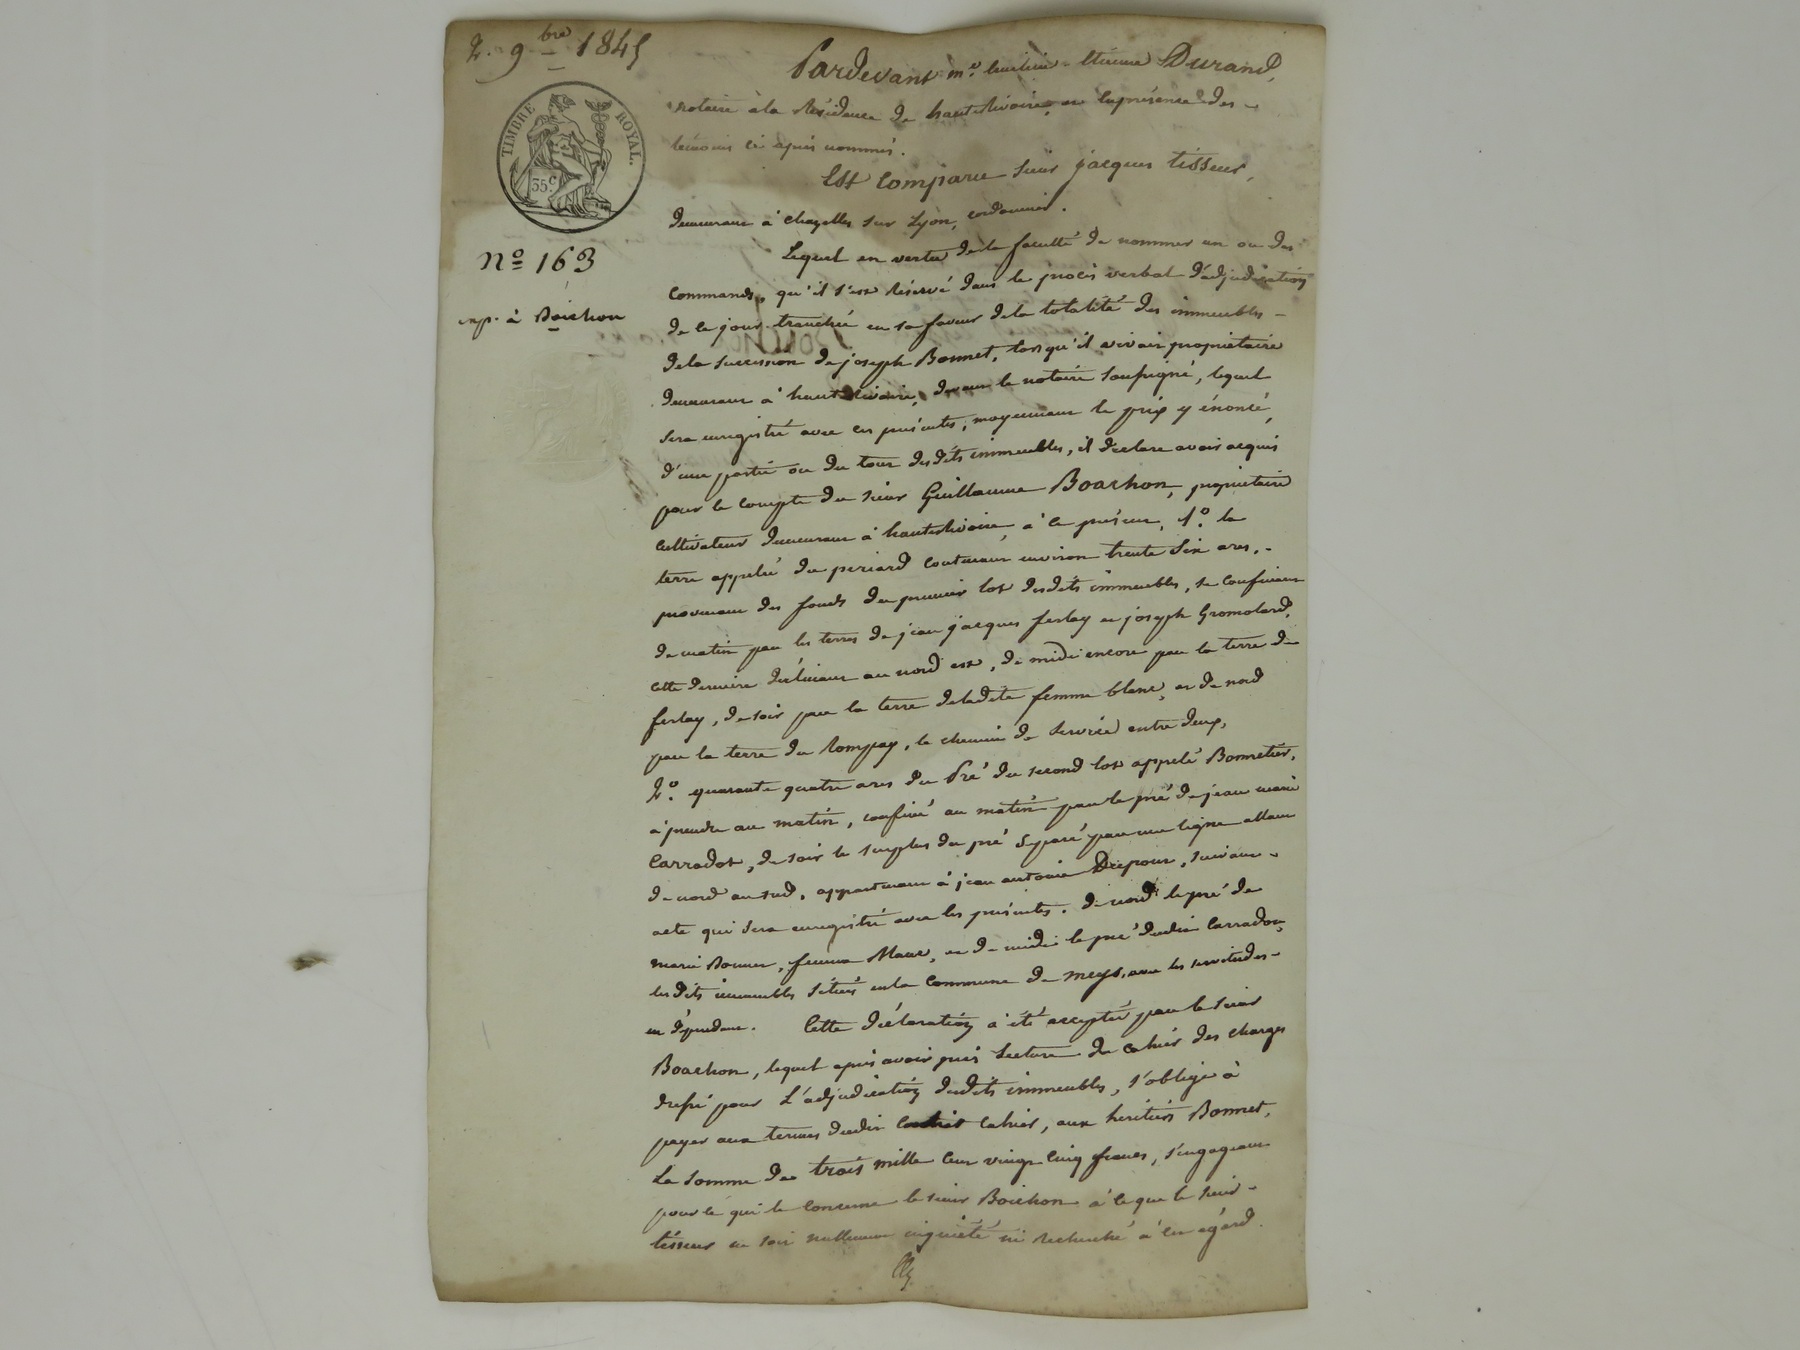 2. 9bre 1845
TIMBRE ROYAL.
35c
No 163
exp. à Boichon
Pardevant me. Etienne Durand,
notaire à la Résidence de hauterivoire, en la présence des
témoins ci après nommés.
Est Comparu sieur jacques tisseur,
demeurant à chazelles sur Lyon, cordonnier.
Lequel en vertu de la faculté de nommer un ou des
commands, qu'il s'est réservé dans le procès verbal d'adjudication
de ce jour tranchée en sa faveur de la totalité des immeubles
de la succession de joseph Bonnet, lorsqu'il vivait propriétaire
demeurant à hauterivoire, devant le notaire soussigné, lequel
sera enregistré avec ces présentes, moyennant le prix y énoncé,
d'une partie ou du tout desdits immeubles, il déclare avoir acquis
pour le compte du sieur Guillaume Boachon, propriétaire
cultivateur demeurant à hauterivoire, à ce présent, 1o. la
terre appelée du periard contenant environ trente six ares,
provenant des fonds du premier lot desdits immeubles, se confinant
de matin par les terres de jean jacques ferlay et joseph Gromolard,
cette dernière déclinant au nord est, de midi encore par la terre de
ferlay, de soir par la terre de ladite femme blanc, et de nord
par la terre du Rompay, le chemin de service entre deux,
2o. quarante quatre ares du Pré du second lot appelé Bonnetier,
à prendre au matin, confiné au matin par le pré de jean marie
Carradot, de soir le surplus du pré séparé par une ligne allant
de nord au sud, appartenant à jean antoine Drepour, suivant
acte qui sera enregistré avec les présentes. de nord le pré de
marie Bonnet, femme et de midi le pré dudit Carradot,
lesdits immeubles situés en la commune de meys, avec les servitudes
en dépendant. Cette déclaration a été acceptée par le sieur
Boachon, lequel après avoir pris lecture du cahier des charges
dressé pour L'adjudication desdits immeubles, s'oblige à
payer aux termes dudit cahier, aux héritiers Bonnet,
La somme de trois mille cent vingt cinq francs, s'engageant
pour ce qui le concerne le sieur Boichon à ce que le sieur
tisseur ne soit nullement inquiété ni recherché à cet égard.